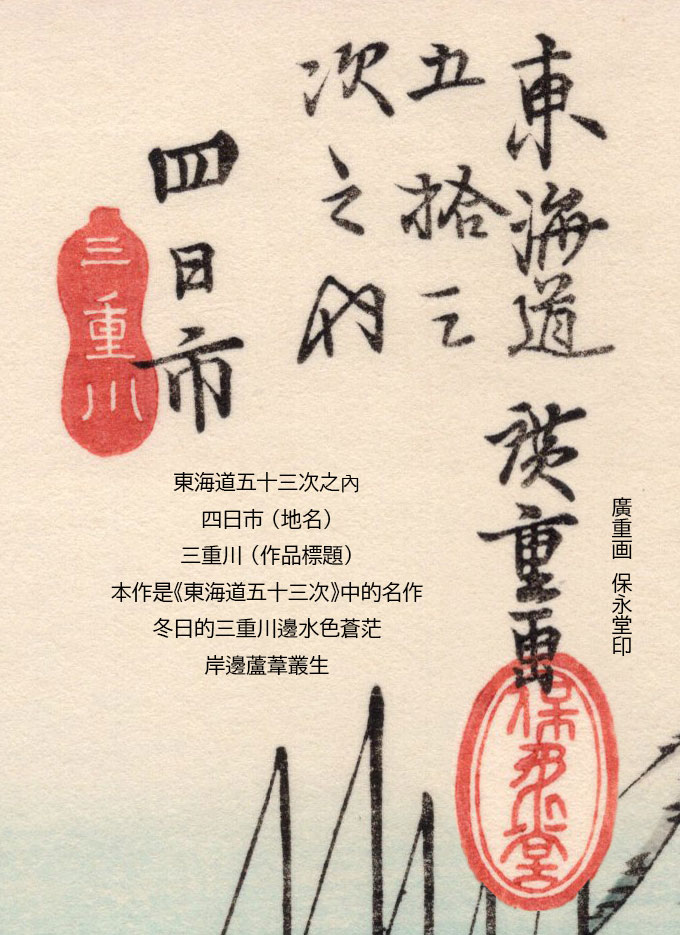 東海道
五拾三
次之内
四日市
三重川
廣重画
保永堂
東海道五十三次之內
四日市（地名）
三重川（作品標題）
本作是《東海道五十三次》中的名作
冬日的三重川邊水色蒼茫
岸邊蘆葦叢生
廣重画 保永堂印